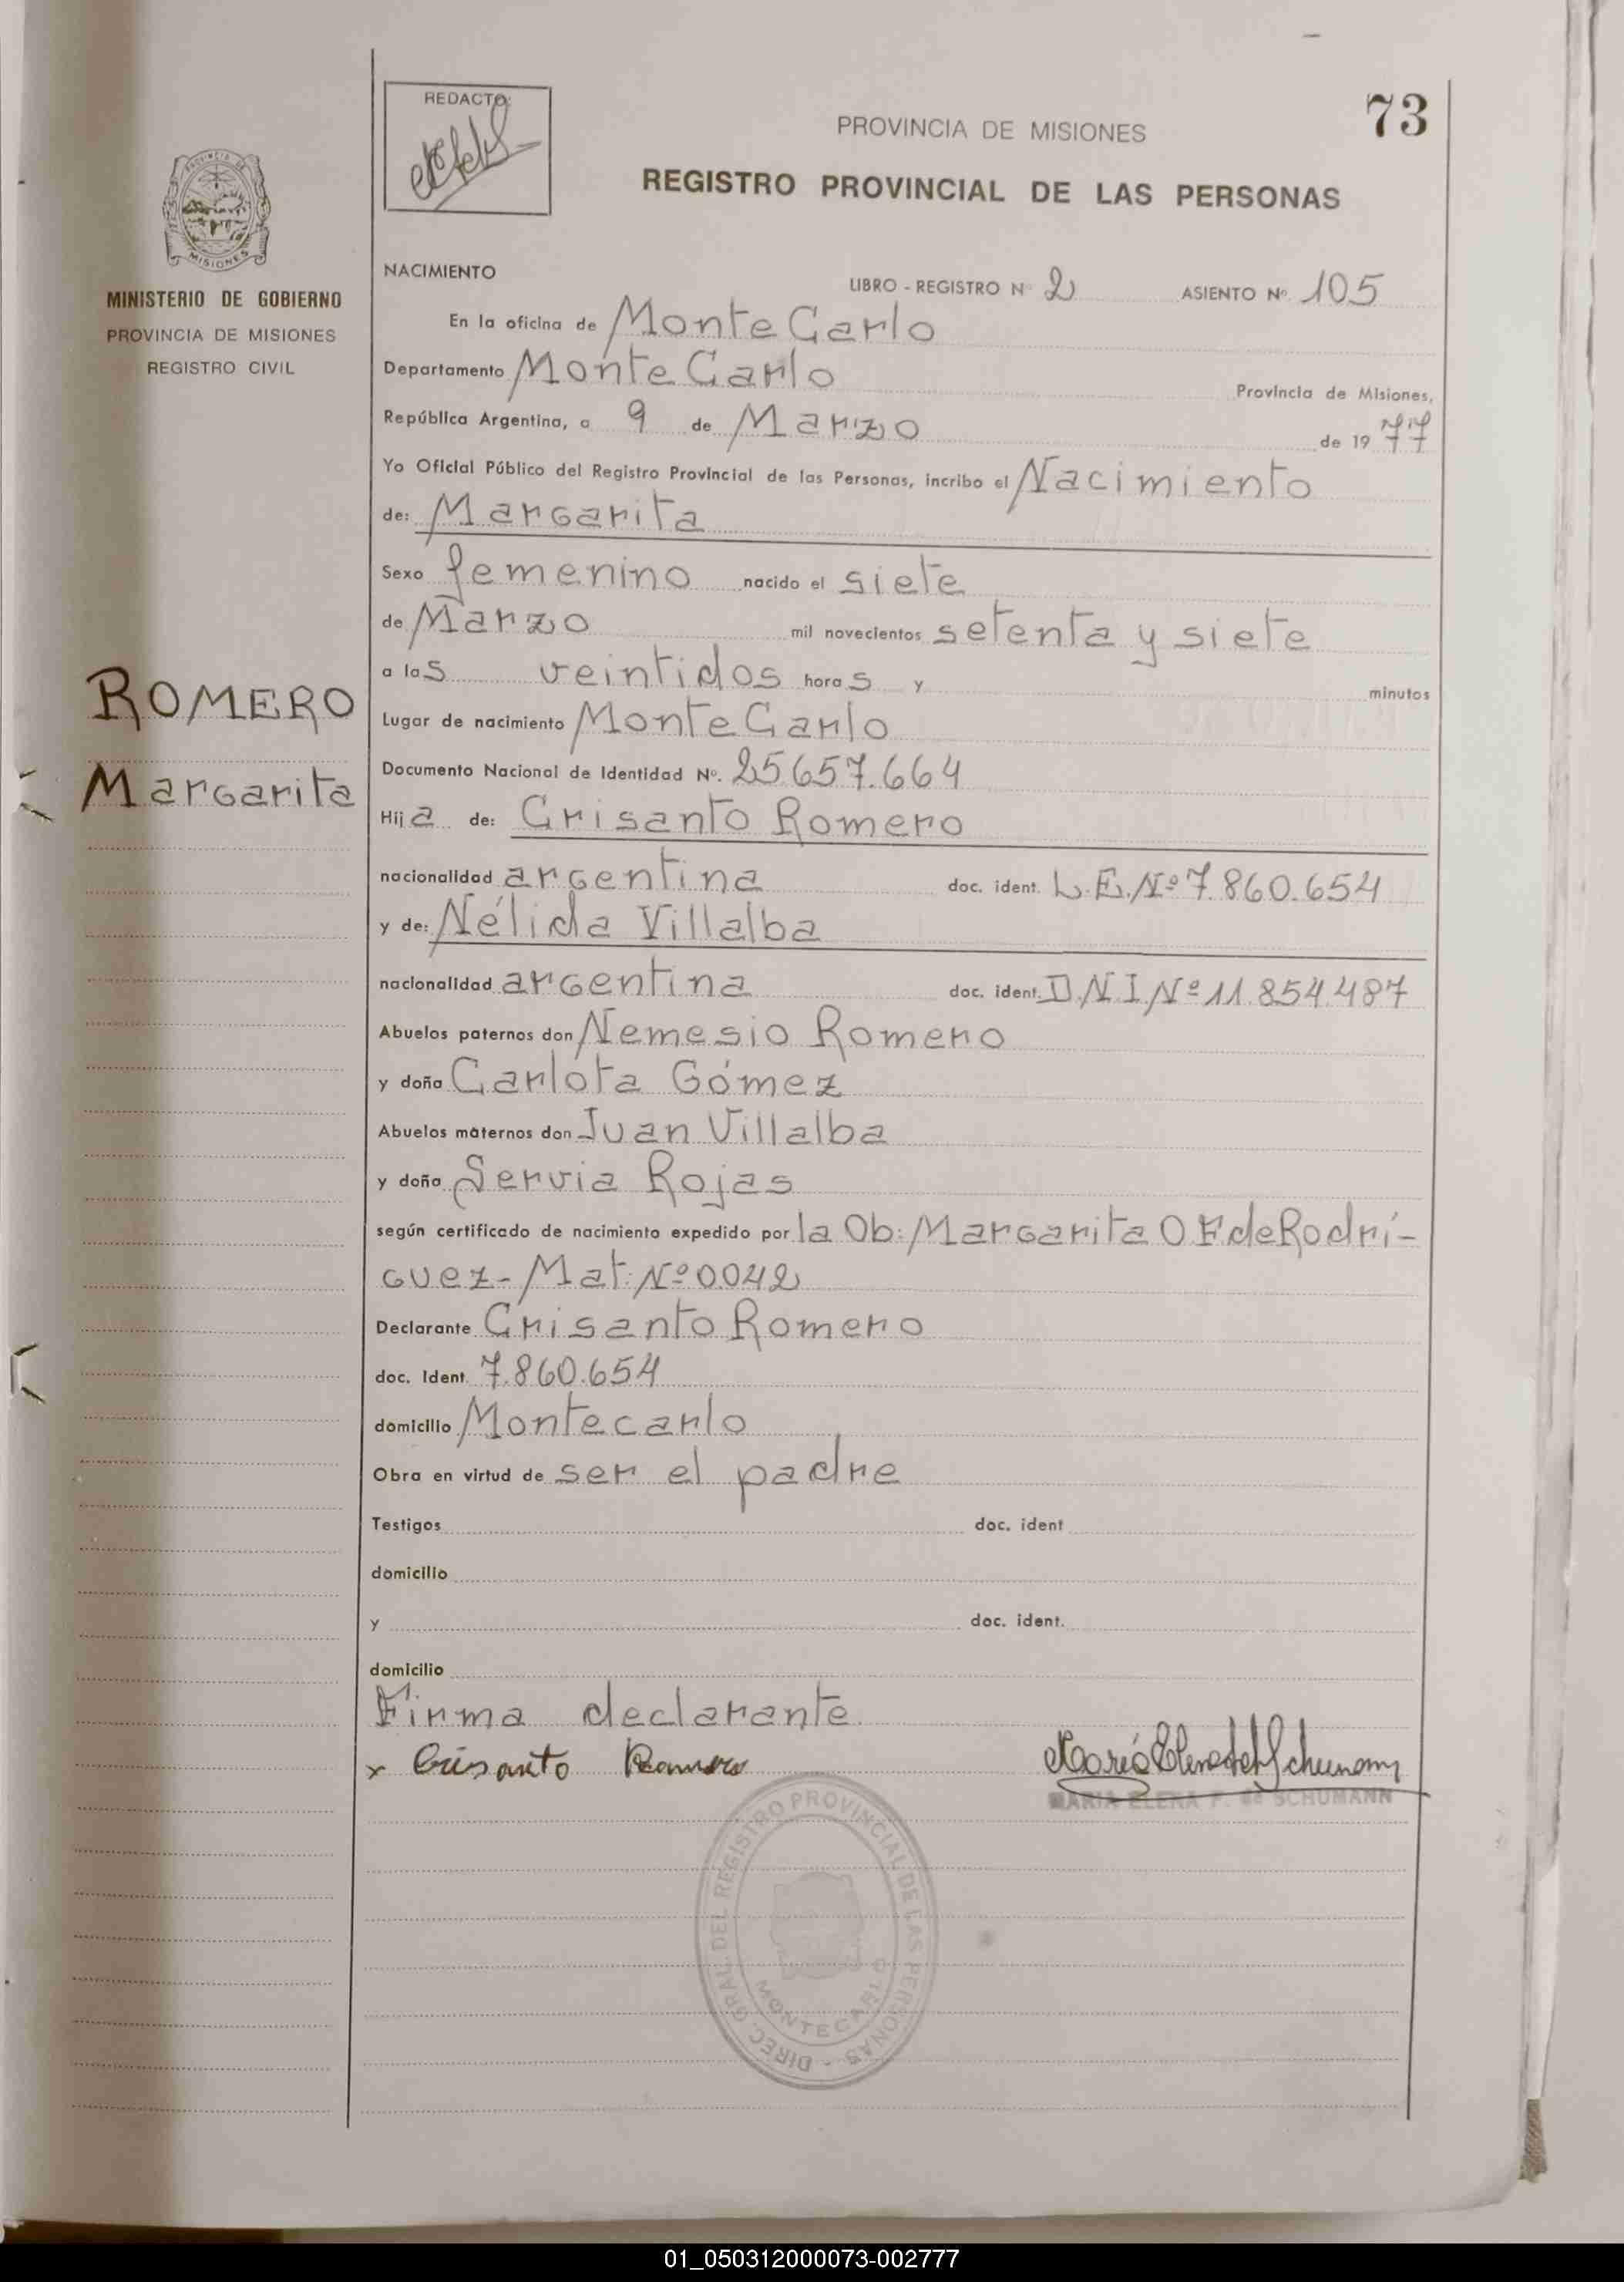 REDACTO:
PROVINCIA DE MISIONES
73
REGISTRO PROVINCIAL DE LAS PERSONAS
PROVINCIA DE
MISIONES
MINISTERIO DE GOBIERNO
PROVINCIA DE MISIONES
REGISTRO CIVIL
ROMERO
Margarita
NACIMIENTO
LIBRO - REGISTRO Nº 2 ASIENTO Nº 105
En la oficina de Monte Carlo
Departamento Monte Carlo Provincia de Misiones,
República Argentina, a 9 de Marzo de 1977
Yo Oficial Público del Registro Provincial de las Personas, incribo el Nacimiento
de: Margarita
Sexo femenino nacido el siete
de Marzo mil novecientos setenta y siete
a las veintidos horas y minutos
Lugar de nacimiento Monte Carlo
Documento Nacional de Identidad Nº. 25.657.664
Hija de: Crisanto Romero
nacionalidad argentina doc. ident. L.E.Nº 7.860.654
y de: Nélida Villalba
nacionalidad argentina doc. ident. D.N.I.Nº 11.854.487
Abuelos paternos don Nemesio Romero
y doña Carlota Gómez
Abuelos maternos don Juan Villalba
y doña Servia Rojas
según certificado de nacimiento expedido por la Ob: Margarita O.F. de Rodrí-
guez - Mat: Nº 0042
Declarante Crisanto Romero
doc. Ident. 7.860.654
domicilio Montecarlo
Obra en virtud de ser el padre
Testigos doc. ident
domicilio
y doc. ident.
domicilio
Firma declarante
x Crisanto Romero
MARIA ELENA F. de SCHUMANN
DIREC. GRAL. DEL REGISTRO PROVINCIAL DE LAS PERSONAS -
MONTECARLO
01_050312000073-002777